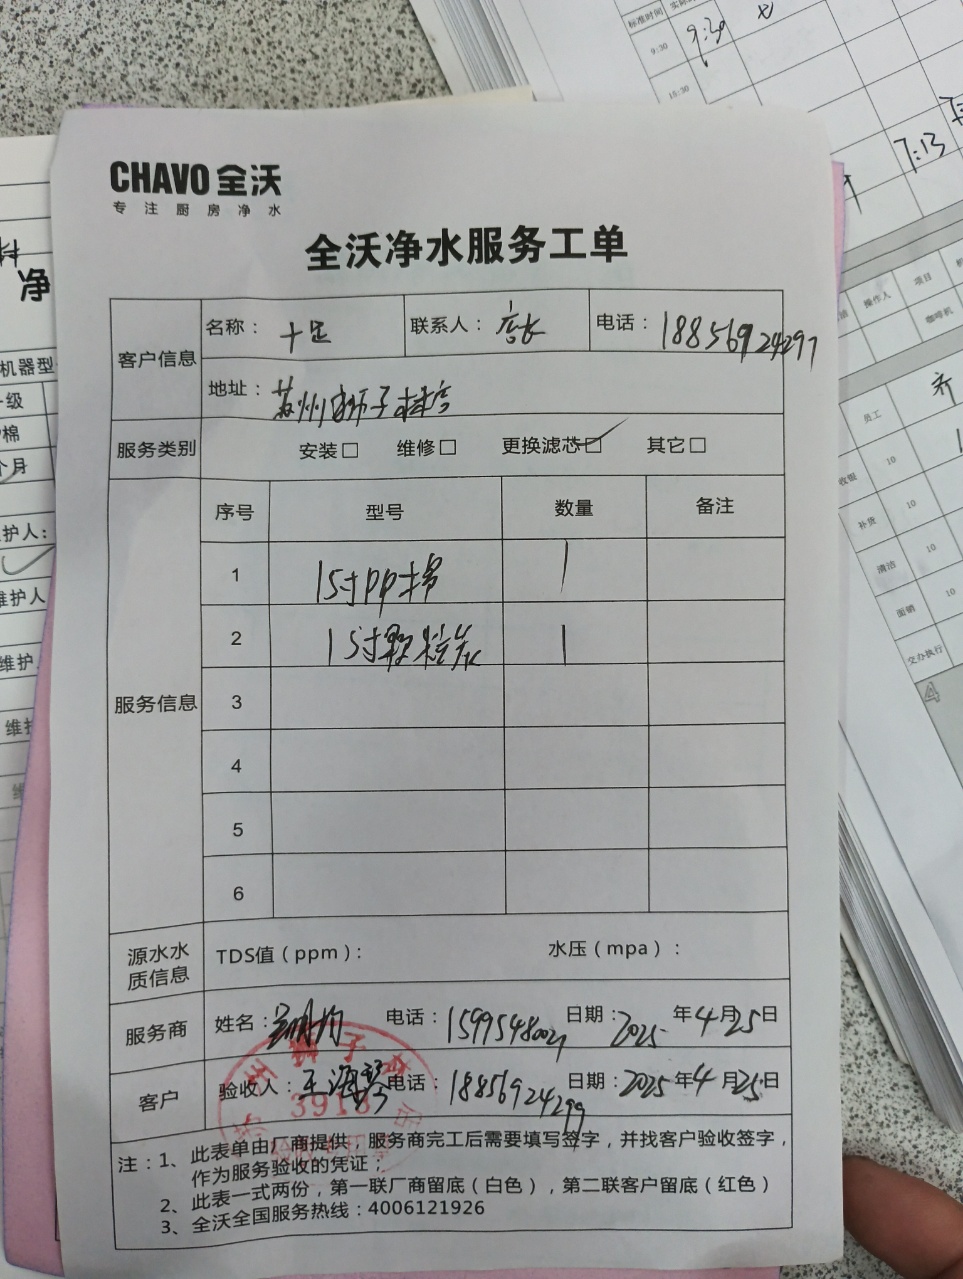 CHAVO 全沃
专注厨房净水
全沃净水服务工单
客户信息 名称：十足 联系人：店长 电话：18856924297
地址：苏州狮子林店
服务类别 安装□ 维修□ 更换滤芯☑ 其它□
服务信息 序号 型号 数量 备注
1 15寸PP棉 1
2 15寸颗粒炭 1
3
4
5
6
源水水质信息 TDS值（ppm）： 水压（mpa）：
服务商 姓名： 电话：15995480021 日期：2025年4月25日
客户 验收人：王海 电话：18856924299 日期：2025年4月25日
3918
注：1、此表单由厂商提供，服务商完工后需要填写签字，并找客户验收签字，
作为服务验收的凭证；
2、此表一式两份，第一联厂商留底（白色），第二联客户留底（红色）
3、全沃全国服务热线：4006121926
净
机器型
一级
棉
个月
护人：
维护人
维护
标准时间
9:30 9:30
15:30
7:13
操作人 项目
咖啡机
员工 齐
收银 10
补货 10
清洁 10
面销 10
交办执行
4